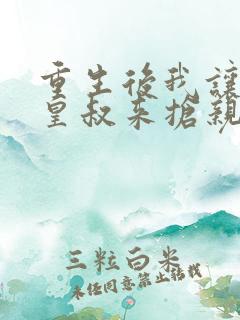 重生後我讓
皇叔來搶親
三粒白米
未经同意禁止转载